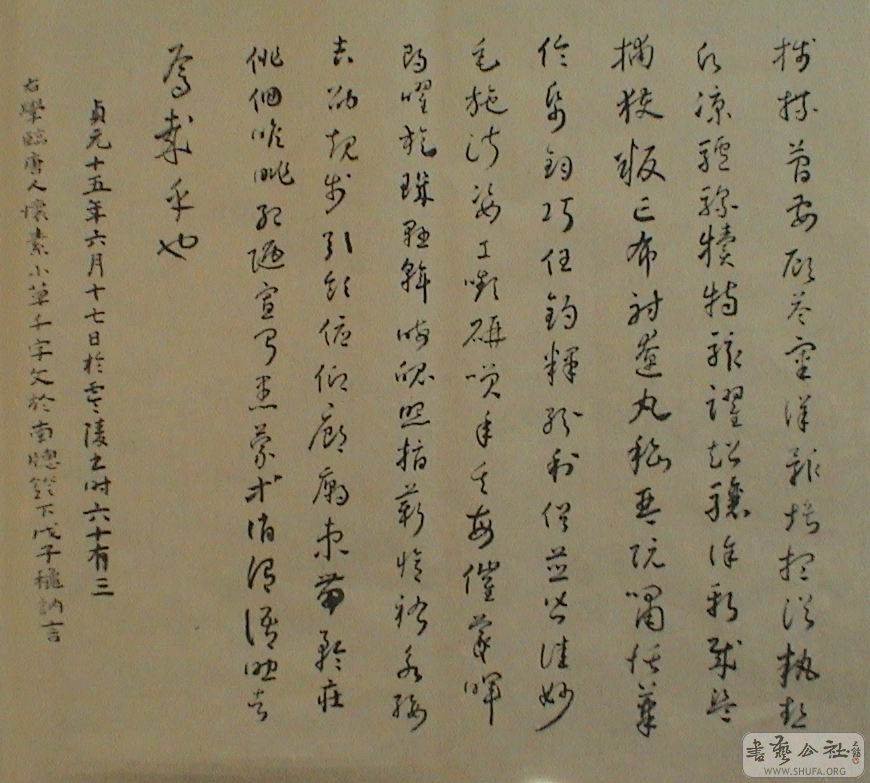 牋牒簡要顧答審詳骸垢想浴執熱
願涼驢騾犢特駭躍超驤誅斬賊盜
捕獲叛亡布射遼丸嵇琴阮嘯恬筆
倫紙鈞巧任釣釋紛利俗並皆佳妙
毛施淑姿工顰妍笑年矢每催羲暉
朗曜旋璣懸斡晦魄照指薪修祜永綏
吉劭矩步引領俯仰廊廟束帶矜莊
徘徊瞻眺孤陋寡聞愚蒙等誚謂語助者
焉哉乎也
貞元十五年六月十七日於零陵書時六十有三
右學臨唐人懷素小草千字文於南牕鐙下戊子穐訥言
書藝公社
WWW.SHUFA.ORG